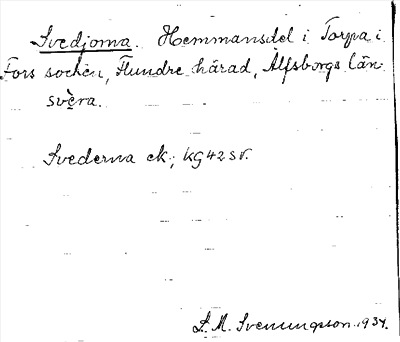 Svedjorna. Hemmansdel i Torpa i
Fors socken, Flundre härad, Älfsborgs län.
svèra.
Svederna ek; kg 42 sv.
L. M. Svenungsson. 1934.